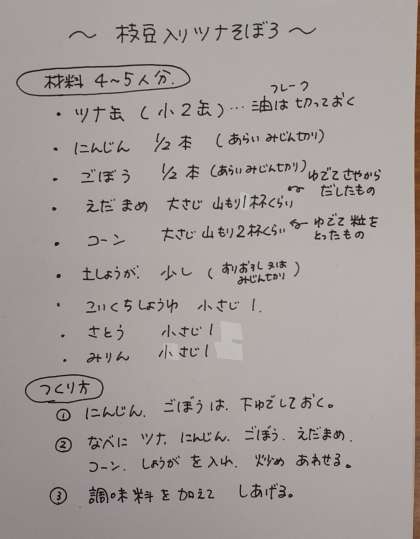 ～ 枝豆入りツナそぼろ ～
材料 4～5人分.
フレーク
・ ツナ缶 (小2缶)… 油は切っておく
・ にんじん 1/2本 (あらいみじん切り)
・ ごぼう 1/2本 (あらいみじん切り)
ゆでてさやから
だしたもの
・ えだまめ 大さじ 山もり1杯くらい
・ コーン 大さじ 山もり2杯くらい
ゆでて粒を
とったもの
・ 土しょうが. 少し (すりおろし又は
みじん切り)
・ こいくちしょうゆ 小さじ 1.
・ さとう 小さじ 1
・ みりん 小さじ 1
つくり方
① にんじん. ごぼうは. 下ゆでしておく。
② なべに ツナ. にんじん. ごぼう. えだまめ.
コーン. しょうがを入れ. 炒め あわせる。
③ 調味料を加えて しあげる。